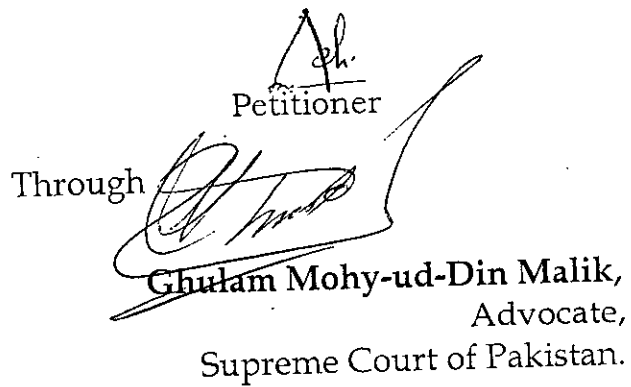 Petitioner
Through
Ghulam Mohy-ud-Din Malik,
Advocate,
Supreme Court of Pakistan.